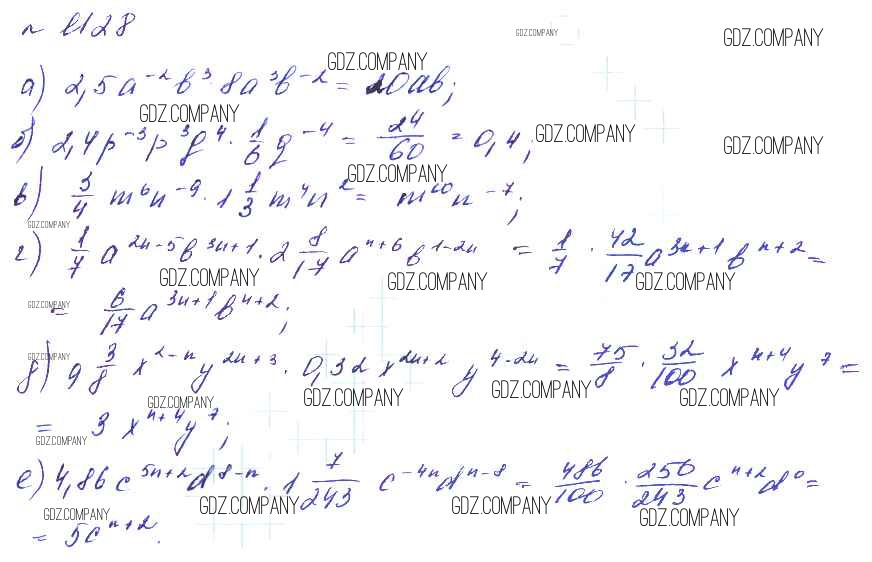 n 1128
GDZ.COMPANY
GDZ.COMPANY
GDZ.COMPANY
а) 2,5a⁻²b³ 8a³b⁻² = 20ab;
GDZ.COMPANY
GDZ.COMPANY
б) 2,4p⁻³p³g⁴ · 1/6 g⁻⁴ = 24/60 = 0,4;
GDZ.COMPANY
GDZ.COMPANY
в) 3/4 m⁶n⁻⁹ · 1 1/3 m⁴n² = m¹⁰n⁻⁷;
GDZ.COMPANY
г) 1/7 a²ⁿ⁻⁵b³ⁿ⁺¹ · 2 8/17 aⁿ⁺⁶b¹⁻²ⁿ = 1/7 · 42/17 a³ⁿ⁺¹bⁿ⁺² =
GDZ.COMPANY GDZ.COMPANY GDZ.COMPANY
GDZ.COMPANY
= 6/17 a³ⁿ⁺¹bⁿ⁺²;
GDZ.COMPANY
д) 9 3/8 x²⁻ⁿy²ⁿ⁺³ · 0,32x²ⁿ⁺² y⁴⁻²ⁿ = 75/8 · 32/100 xⁿ⁺⁴y⁷ =
GDZ.COMPANY GDZ.COMPANY GDZ.COMPANY GDZ.COMPANY
= 3xⁿ⁺⁴y⁷;
GDZ.COMPANY
е) 4,86c⁵ⁿ⁺²d⁸⁻ⁿ · 1 7/243 c⁻⁴ⁿdⁿ⁻⁸ = 486/100 · 250/243 cⁿ⁺²d⁰ =
GDZ.COMPANY GDZ.COMPANY GDZ.COMPANY GDZ.COMPANY
= 5cⁿ⁺².